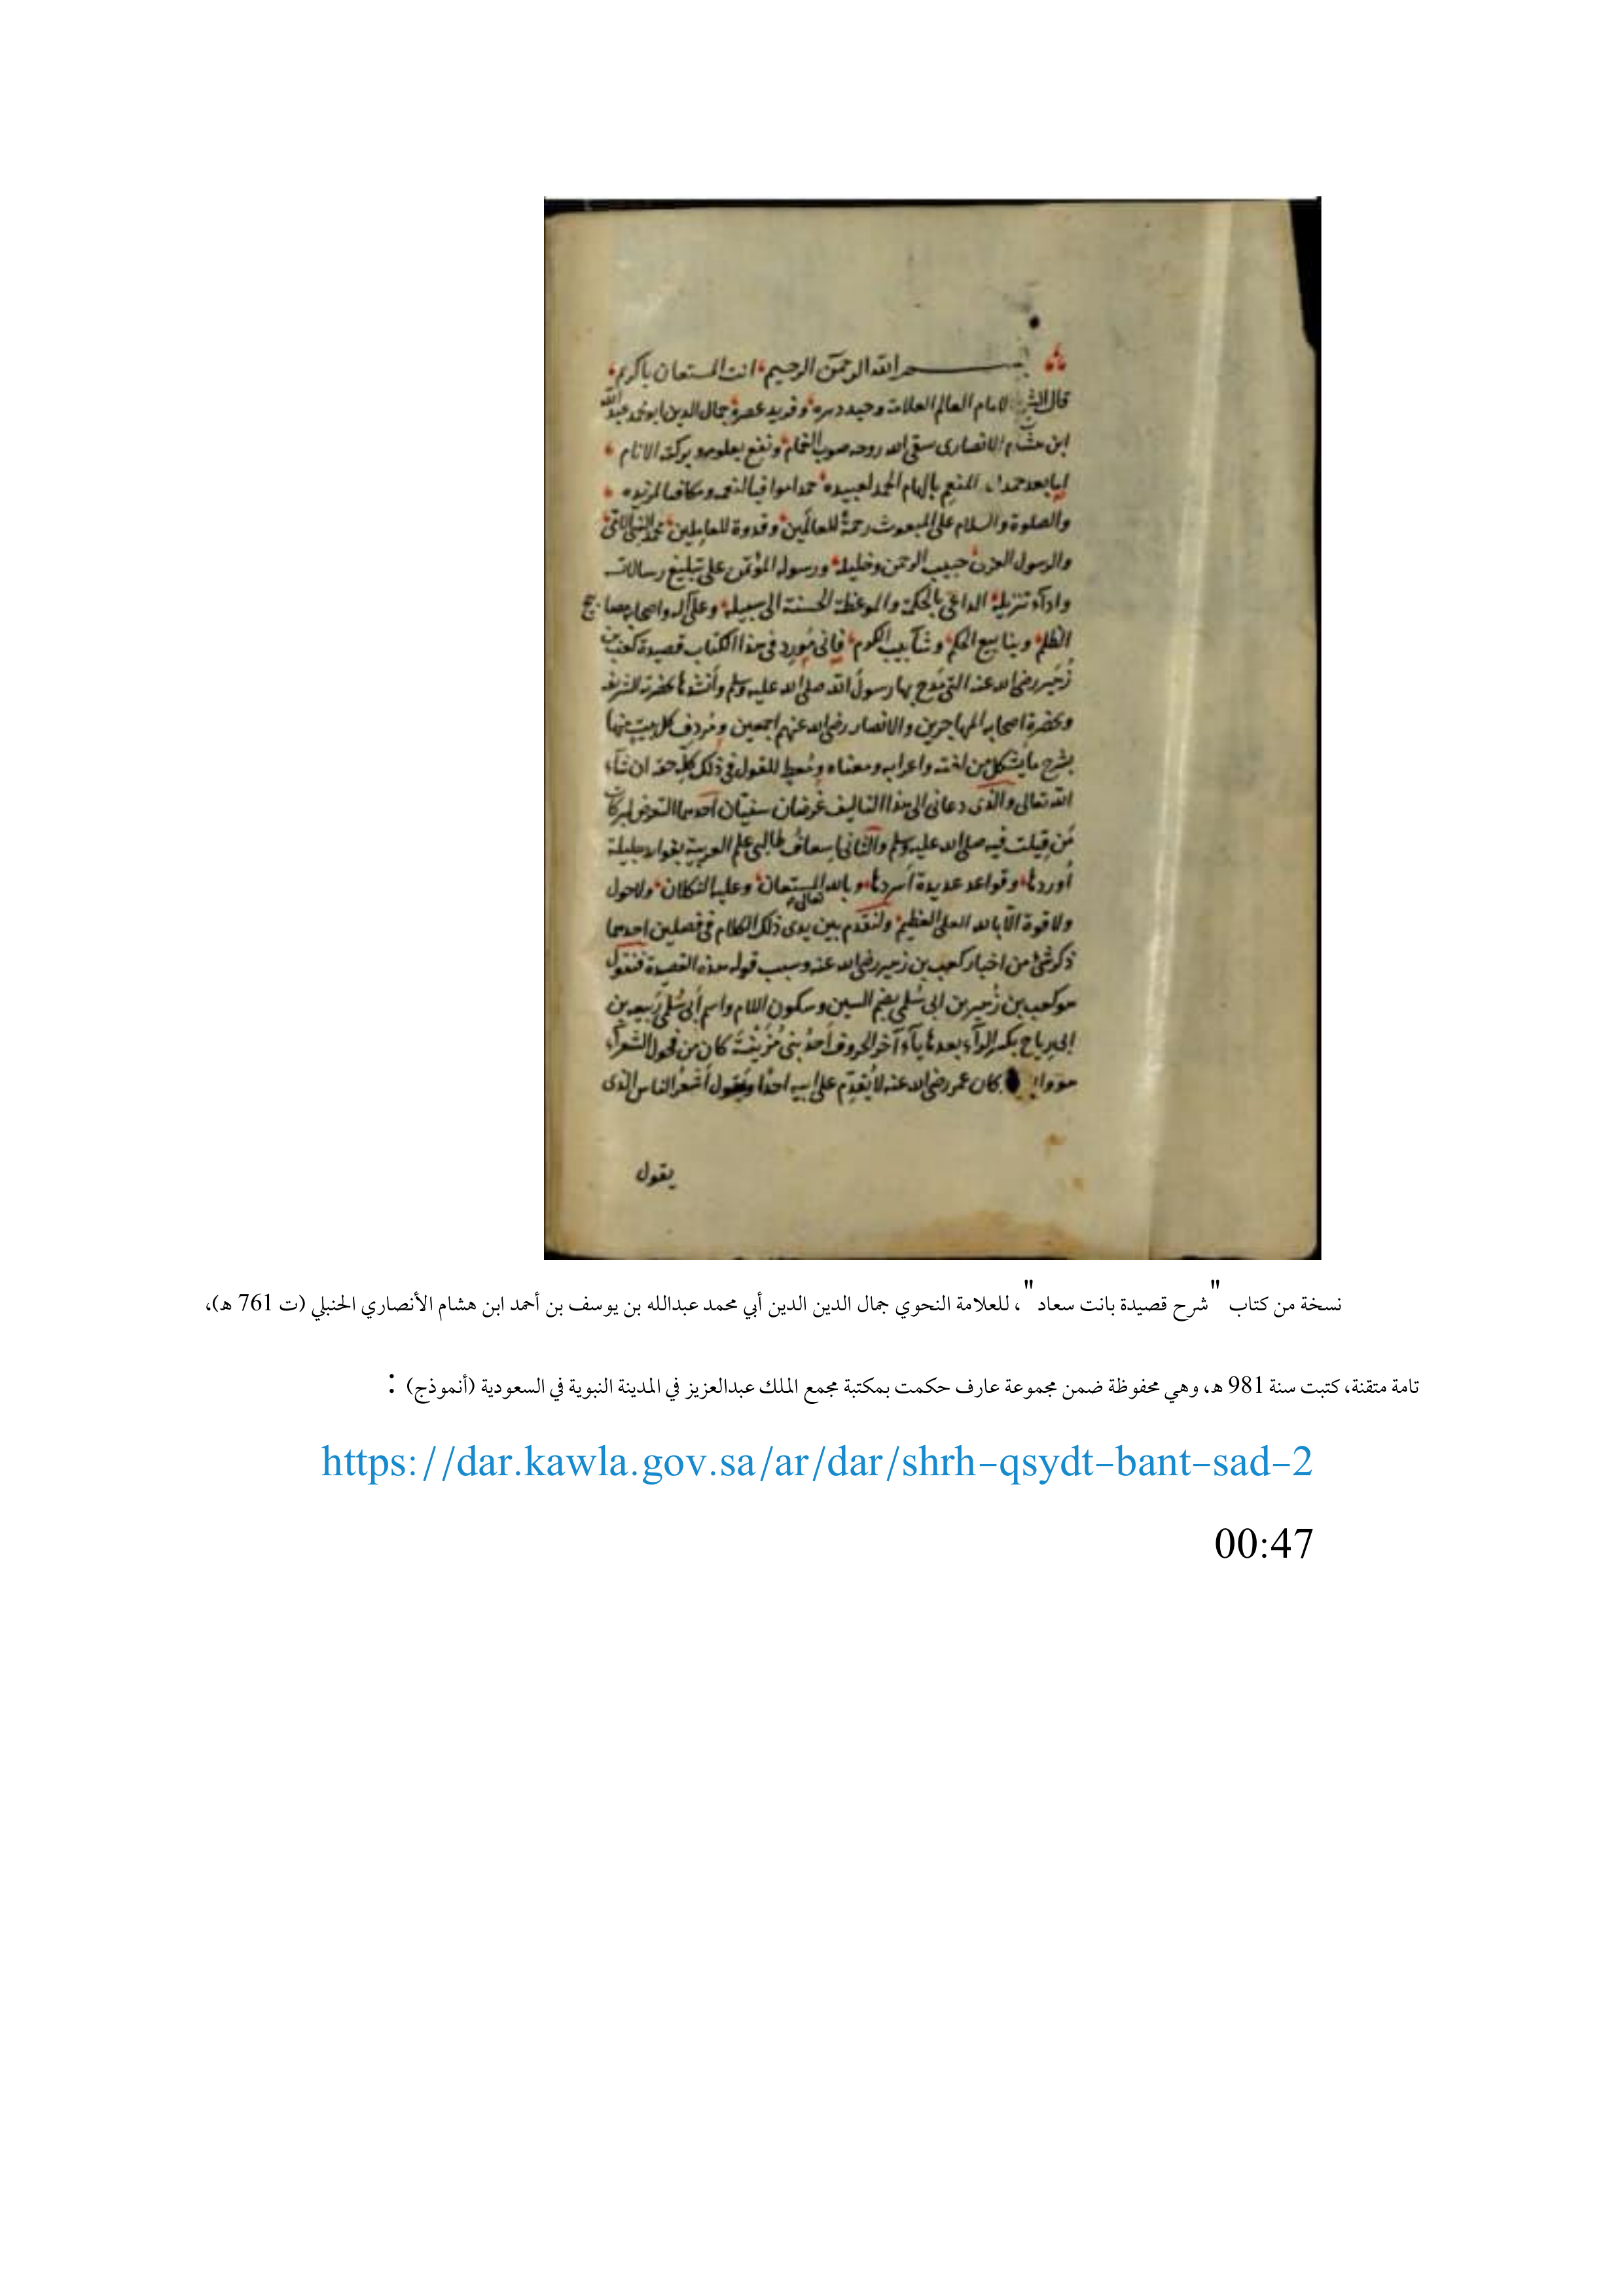 بسم الله الرحمن الرحيم انت المستعان ياكريم
قال الامام العالم العلامة وحيد دهره وفريد عصره جمال الدين ابو محمد عبد الله
ابن هشام الانصارى سقى الله روحه صوب الغمام ونفع بعلومه وبركته الانام
اما بعد حمد المنعم بالهام الحمد لعبيده حمدا موافيا لنعمه ومكافيا لمزيده
والصلوة والسلام على المبعوث رحمة للعالمين وقدوة للعاملين محمد النبى الامى
والرسول العربى حبيب الرحمن وخليله ورسوله المؤتمن على تبليغ رسالاته
واداء تنزيله الداعى بالحكمة والموعظة الحسنة الى سبيله وعلى آله واصحابه مصابيح
الظلم وينابيع الحكم وشآبيب الكرم فانى مورد فى هذا الكتاب قصيدة كعب بن
زهير رضى الله عنه التى مدح بها رسول الله صلى الله عليه وسلم وأنشدها بحضرته الشريفه
وبحضرة اصحابه المهاجرين والانصار رضى الله عنهم اجمعين ومردف كل بيت منها
بشرح ما يشكل من لغته واعرابه ومعناه ومعط للقول فى ذلك كله حقه ان شاء
الله تعالى والذى دعانى الى هذا التاليف غرضان سنيان احدهما التعرض لبركات
من قيلت فيه صلى الله عليه وسلم والثانى اسعاف طالبى علم العربية بفوايد جليلة
أوردها وقواعد عديدة أسردها وبالله تعالى المستعان وعليه التكلان ولاحول
ولاقوة الا بالله العلى العظيم ولنقدم بين يدى ذلك الكلام فى فصلين احدهما
ذكر شئ من اخبار كعب بن زهير رضى الله عنه وسبب قوله هذه القصيدة فنقول
هو كعب بن زهير بن ابى سلمى بضم السين وسكون اللام واسم أبى سلمى ربيعه بن
ابى رياح بكسر الراء بعدها ياء آخر الحروف أحد بنى مزينة كان من فحول الشعراء
هو وابوه كان عمر رضى الله عنه لا يقدم على ابيه احدا ويقول أشعر الناس الذى
يقول
نسخة من كتاب "شرح قصيدة بانت سعاد"، للعلامة النحوي جمال الدين الدين أبي محمد عبدالله بن يوسف بن أحمد ابن هشام الأنصاري الحنبلي (ت 761 هـ)،
تامة متقنة، كتبت سنة 981 هـ، وهي محفوظة ضمن مجموعة عارف حكمت بمكتبة مجمع الملك عبدالعزيز في المدينة النبوية في السعودية (أنموذج) :
https://dar.kawla.gov.sa/ar/dar/shrh-qsydt-bant-sad-2
00:47